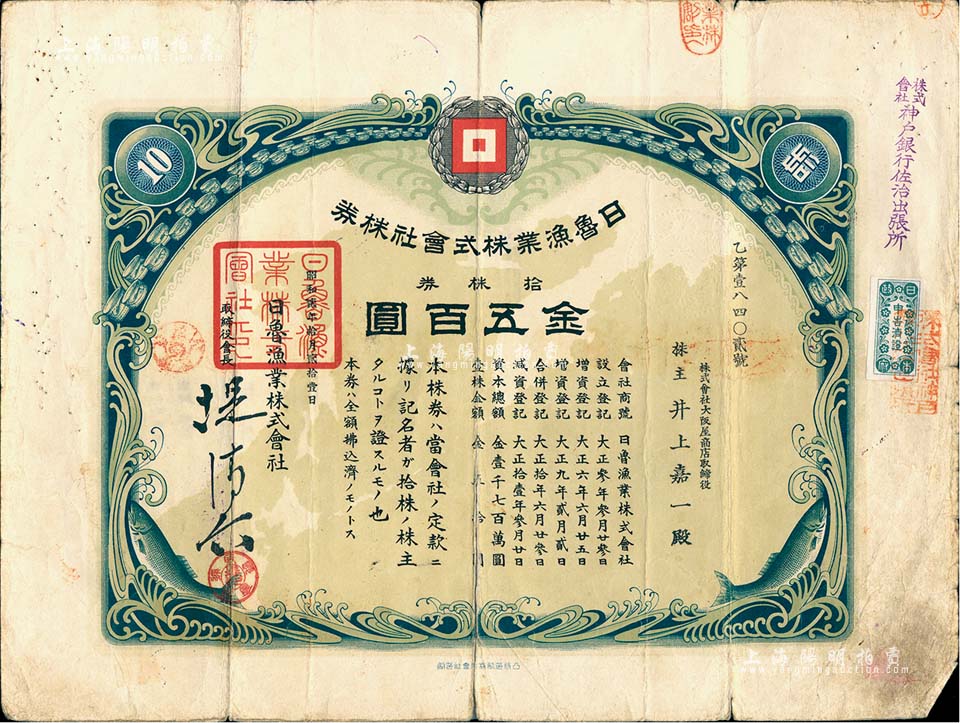 上海陽明拍賣
www.yangmingauction.com
株式
會社
神戸銀行佐治出張所
10
拾
日魯漁業株式會社株券
拾株券
金五百圓
乙第壹八四〇貳號
株式會社大阪屋商店取締役
株主 井上嘉一殿
會社商號 日魯漁業株式會社
設立登記 大正參年參月廿參日
增資登記 大正六年六月廿五日
增資登記 大正九年貳月貳日
合併登記 大正拾年六月廿參日
減資登記 大正拾壹年參月廿日
資本總額 金壹千七百萬圓
壹株金額 金五拾圓
本株券ハ當會社ノ定款ニ
據リ記名者ガ拾株ノ株主
タルコトヲ證スルモノ也
本券ハ全額拂込濟ノモノトス
月貳拾壹日
日魯漁業株式會社
取締役會長
堤清六
日魯漁
業株式
會社之印
上海陽明拍賣
www.yangmingauction.com
上海陽明拍賣
www.yangmingauction.com